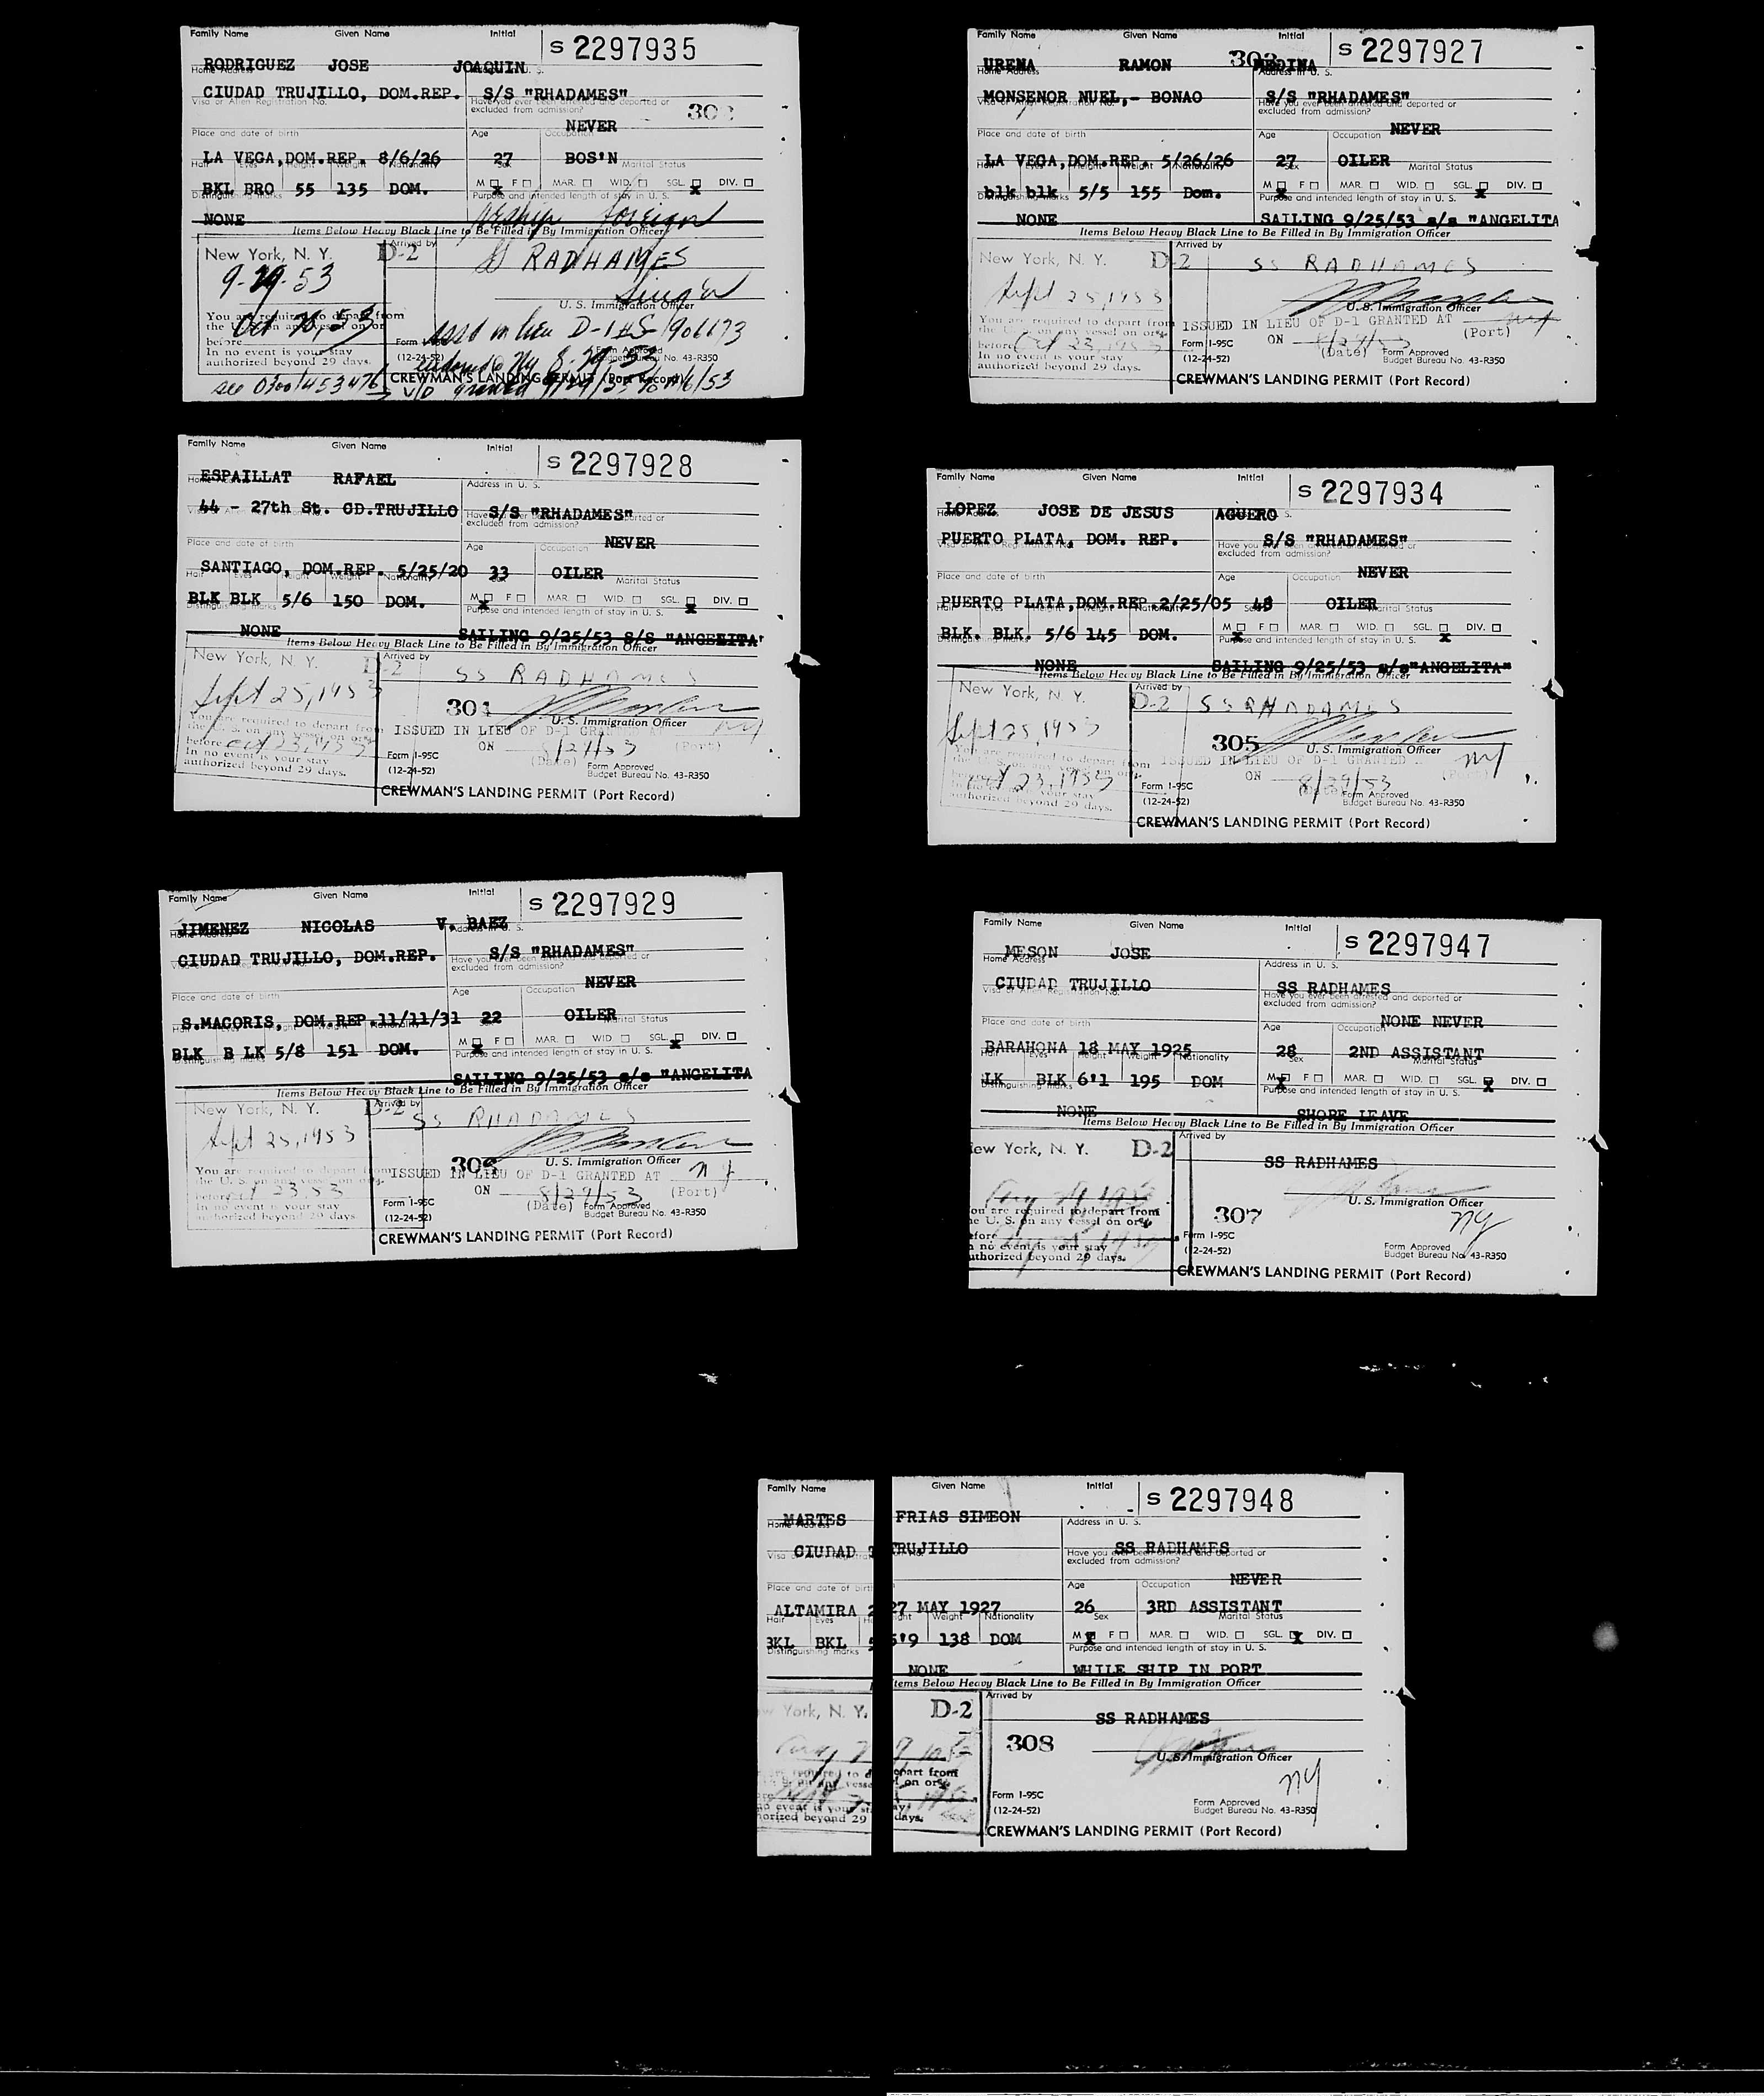 Family Name Given Name Initial S 2297935
RODRIGUEZ JOSE JOAQUIN
Home Address Address in U. S.
CIUDAD TRUJILLO, DOM.REP. S/S "RHADAMES"
Visa or Alien Registration No. Have you ever been arrested and deported or
excluded from admission?
NEVER
Place and date of birth Age Occupation
LA VEGA, DOM.REP. 8/6/26 27 BOS'N
Hair Eyes Height Weight Nationality Sex Marital Status
BKL BRO 55 135 DOM. M X F MAR. WID. SGL. X DIV.
Distinguishing marks Purpose and intended length of stay in U. S.
NONE reship foreign
Items Below Heavy Black Line to Be Filled in By Immigration Officer
New York, N. Y. D-2 Arrived by
SS RADHAMES
9-29-53
U. S. Immigration Officer
You are required to depart from
the U. S. on any vessel on or
before Oct 53
issd in lieu D-1 #S-1906173
In no event is your stay
authorized beyond 29 days.
Form I-95C
(12-24-52)
Form Approved
Budget Bureau No. 43-R350
CREWMAN'S LANDING PERMIT (Port Record)
see 0300/453476
V/D granted
Family Name Given Name Initial S 2297927
303
URENA RAMON MEDINA
Home Address Address in U. S.
MONSENOR NUEL,- BONAO S/S "RHADAMES"
Have you ever been arrested and deported or
excluded from admission?
NEVER
Place and date of birth Age Occupation
LA VEGA, DOM.REP. 5/26/26 27 OILER
Hair Eyes Height Weight Nationality Sex Marital Status
blk blk 5/5 155 Dom. M X F MAR. WID. SGL. X DIV.
Distinguishing marks Purpose and intended length of stay in U. S.
NONE SAILING 9/25/53 s/s "ANGELITA
Items Below Heavy Black Line to Be Filled in By Immigration Officer
New York, N. Y. D-2 Arrived by
SS RADHAMES
Sept 25, 1953
U. S. Immigration Officer
You are required to depart from
the U. S. on any vessel on or
before Oct 23, 1953
In no event is your stay
authorized beyond 29 days.
ISSUED IN LIEU OF D-1 GRANTED AT NY
(Port)
ON 8/29/53
(Date)
Form I-95C
(12-24-52)
Form Approved
Budget Bureau No. 43-R350
CREWMAN'S LANDING PERMIT (Port Record)
Family Name Given Name Initial S 2297928
ESPAILLAT RAFAEL
Home Address Address in U. S.
44 - 27th St. CD.TRUJILLO S/S "RHADAMES"
Have you ever been arrested and deported or
excluded from admission?
NEVER
Place and date of birth Age Occupation
SANTIAGO, DOM.REP. 5/25/20 33 OILER
Hair Eyes Height Weight Nationality Marital Status
BLK BLK 5/6 150 DOM. M X F MAR. WID. SGL. X DIV.
Distinguishing marks Purpose and intended length of stay in U. S.
NONE SAILING 9/25/53 S/S "ANGELITA"
Items Below Heavy Black Line to Be Filled in By Immigration Officer
New York, N. Y. D-2 Arrived by
SS RADHAMES
Sept 25, 1953
304
U. S. Immigration Officer
You are required to depart from
the U. S. on any vessel on or
before Oct 23, 1953
In no event is your stay
authorized beyond 29 days.
ISSUED IN LIEU OF D-1 GRANTED AT NY
(Port)
ON 8/29/53
(Date)
Form I-95C
(12-24-52)
Form Approved
Budget Bureau No. 43-R350
CREWMAN'S LANDING PERMIT (Port Record)
Family Name Given Name Initial S 2297934
LOPEZ JOSE DE JESUS AGUERO
Home Address
PUERTO PLATA, DOM. REP. S/S "RHADAMES"
Visa or Alien Registration No. Have you ever been arrested and deported or
excluded from admission?
NEVER
Place and date of birth Age Occupation
PUERTO PLATA, DOM.REP 2/25/05 48 OILER
Hair Eyes Height Weight Nationality Sex Marital Status
BLK. BLK. 5/6 145 DOM. M X F MAR. WID. SGL. X DIV.
Distinguishing marks Purpose and intended length of stay in U. S.
NONE SAILING 9/25/53 s/s"ANGELITA"
Items Below Heavy Black Line to Be Filled in By Immigration Officer
New York, N. Y. D-2 Arrived by
SS RHADAMES
Sept 25, 1953
305
U. S. Immigration Officer
You are required to depart from
the U. S. on any vessel on or
before Oct 23, 1953
In no event is your stay
authorized beyond 29 days.
ISSUED IN LIEU OF D-1 GRANTED NY
ON 8/29/53
Form I-95C
(12-24-52)
Form Approved
Budget Bureau No. 43-R350
CREWMAN'S LANDING PERMIT (Port Record)
Family Name Given Name Initial S 2297929
JIMENEZ NICOLAS V. BAEZ
Home Address Address in U. S.
CIUDAD TRUJILLO, DOM.REP. S/S "RHADAMES"
Have you ever been arrested and deported or
excluded from admission?
NEVER
Place and date of birth Age Occupation
S.MACORIS, DOM.REP.11/11/31 22 OILER
Hair Eyes Height Weight Nationality Sex Marital Status
BLK B LK 5/8 151 DOM. M X F MAR. WID SGL. X DIV.
Distinguishing marks Purpose and intended length of stay in U. S.
SAILING 9/25/53 s/s "ANGELITA
Items Below Heavy Black Line to Be Filled in By Immigration Officer
New York, N. Y. D-2 Arrived by
SS RHADAMES
Sept 25, 1953
306
U. S. Immigration Officer
You are required to depart from
the U. S. on any vessel on or
before Oct 23, 53
In no event is your stay
authorized beyond 29 days
ISSUED IN LIEU OF D-1 GRANTED AT NY
(Port)
ON 8/29/53
(Date)
Form I-95C
(12-24-52)
Form Approved
Budget Bureau No. 43-R350
CREWMAN'S LANDING PERMIT (Port Record)
Family Name Given Name Initial S 2297947
MESON JOSE
Home Address Address in U. S.
CIUDAD TRUJILLO SS RADHAMES
Visa or Alien Registration No. Have you ever been arrested and deported or
excluded from admission?
NONE NEVER
Place and date of birth Age Occupation
BARAHONA 18 MAY 1925 28 2ND ASSISTANT
Hair Eyes Height Weight Nationality Sex Marital Status
LK BLK 6'1 195 DOM M X F MAR. WID. SGL. X DIV.
Distinguishing marks Purpose and intended length of stay in U. S.
NONE SHORE LEAVE
Items Below Heavy Black Line to Be Filled in By Immigration Officer
ew York, N. Y. D-2 Arrived by
SS RADHAMES
307
U. S. Immigration Officer
NY
ou are required to depart from
he U. S. on any vessel on or
efore
n no event is your stay
uthorized beyond 29 days.
Form I-95C
(12-24-52)
Form Approved
Budget Bureau No. 43-R350
CREWMAN'S LANDING PERMIT (Port Record)
Family Name Given Name Initial S 2297948
MARTES FRIAS SIMEON
Home Address Address in U. S.
CIUDAD TRUJILLO SS RADHAMES
Have you ever been arrested and deported or
excluded from admission?
NEVER
Place and date of birth Age Occupation
ALTAMIRA 27 MAY 1927 26 3RD ASSISTANT
Hair Eyes Height Weight Nationality Sex Marital Status
BKL BKL 5'9 138 DOM M X F MAR. WID. SGL. X DIV.
Distinguishing marks Purpose and intended length of stay in U. S.
NONE WHILE SHIP IN PORT
Items Below Heavy Black Line to Be Filled in By Immigration Officer
w York, N. Y. D-2 Arrived by
SS RADHAMES
308
U. S. Immigration Officer
NY
are required to depart from
on any vessel on or
no event is your stay
horized beyond 29 days.
Form I-95C
(12-24-52)
Form Approved
Budget Bureau No. 43-R350
CREWMAN'S LANDING PERMIT (Port Record)